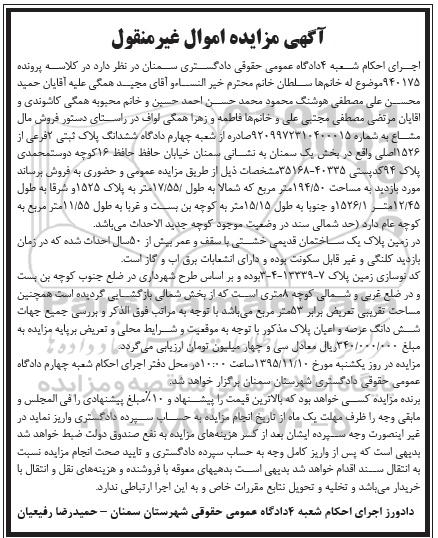 آگهی مزایده اموال غیرمنقول
اجرای احکام شعبه ۴دادگاه عمومی حقوقی دادگستری سمنان در نظر دارد در کلاسه پرونده
۹۴۰۱۷۵موضوع له خانم‌ها سلطان خانم محترم خیر النساءو آقای مجید همگی علیه آقایان حمید
محسن علی مصطفی هوشنگ محمود محمد حسن احمد حسین و خانم محبوبه همگی کاشوندی و
اقایان مرتضی مصطفی مجتبی علی و خانم‌ها فاطمه و زهرا همگی لواف در راستای دستور فروش مال
مشاع به شماره ۹۲۰۹۹۷۲۳۱۰۴۰۰۰۱۵صادره از شعبه چهارم دادگاه ششدانگ پلاک ثبتی ۲فرعی از
۱۵۲۶اصلی واقع در بخش یک سمنان به نشانی سمنان خیابان حافظ حافظ ۱۶کوچه دوستمحمدی
پلاک ۹۴کدپستی ۴۰۳۳۵-۳۵۱۶۸مشخصات ذیل از طریق مزایده عمومی و حضوری به فروش برساند
مورد بازدید به مساحت ۱۹۴/۵۰ متر مربع که شمالا به طول /۱۷/۵۵متر به پلاک ۱۵۲۵و شرقا به طول
۱۲/۴۵متر ۱۵۲۶/۱و جنوبا به طول ۱۵/۱۵متر به کوچه بن بست و غربا به طول ۱۱/۵۵متر مربع به
کوچه عام دارد (حد شمالی سند در وضعیت موجود کوچه جدید الاحداث می‌باشد.
در زمین پلاک یک ساختمان قدیمی خشتی با سقف و عمر بیش از ۵۰سال احداث شده که در زمان
بازدید کلنگی و غیر قابل سکونت بوده و دارای انشعابات برق اب و گاز است.
کد نوسازی زمین پلاک ۷-۱۳۳۳۹-۴-۳بوده و بر اساس طرح شهرداری در ضلع جنوب کوچه بن بست
و در ضلع غربی و شمالی کوچه ۸متری است که از بخش شمالی بازگشایی گردیده است همچنین
مساحت تقریبی تعریض برابر ۵۳متر مربع می‌باشد با توجه به مراتب فوق الذکر و بررسی جمیع جهات
شش دانگ عرصه و اعیان پلاک مذکور با توجه به موقعیت و شرایط محلی و تعریض برپایه مزایده به
مبلغ ۳۴۰/۰۰۰/۰۰۰ریال معادل سی و چهار میلیون تومان ارزیابی می‌گردد.
مزایده در روز یکشنبه مورخ ۱۳۹۵/۱۱/۱۰ساعت ۱۰:۰۰در محل دفتر اجرای احکام شعبه چهارم دادگاه
عمومی حقوقی دادگستری شهرستان سمنان برگزار خواهد شد.
برنده مزایده کسی خواهد بود که بالاترین قیمت را پیشنهاد و ۱۰٪مبلغ پیشنهادی را فی المجلس و
مابقی وجه را ظرف مهلت یک ماه از تاریخ انجام مزایده به حساب سپرده دادگستری واریز نماید در
غیر اینصورت وجه سپرده ایشان بعد از کسر هزینه‌های مزایده به نفع صندوق دولت ضبط خواهد شد
بدیهی است که پس از واریز کامل وجه به حساب سپرده دادگستری و تایید صحت انجام مزایده نسبت
به انتقال سند اقدام خواهد شد بدیهی است بدهیهای معوقه با فروشنده و هزینه‌های نقل و انتقال با
خریدار می‌باشد و تخلیه و تحویل نتابع مقررات خاص و به این اجرا ارتباطی ندارد.
دادورز اجرای احکام شعبه ۴دادگاه عمومی حقوقی شهرستان سمنان – حمیدرضا رفیعیان